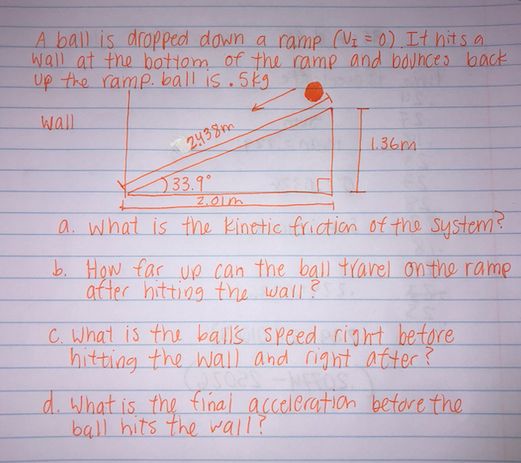 A ball is dropped down a ramp (V_I = 0). It hits a
wall at the bottom of the ramp and bounces back
up the ramp. ball is .5kg
wall
2.438m
1.36m
33.9°
2.01m
a. What is the kinetic friction of the system?
b. How far up can the ball travel on the ramp
after hitting the wall?
c. What is the ball's speed right before
hitting the wall and right after?
d. What is the final acceleration before the
ball hits the wall?